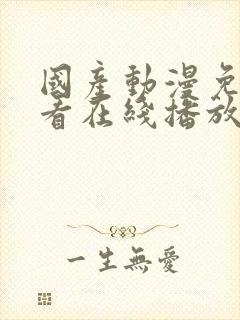 國產動漫免
看在綫播放
一生無愛